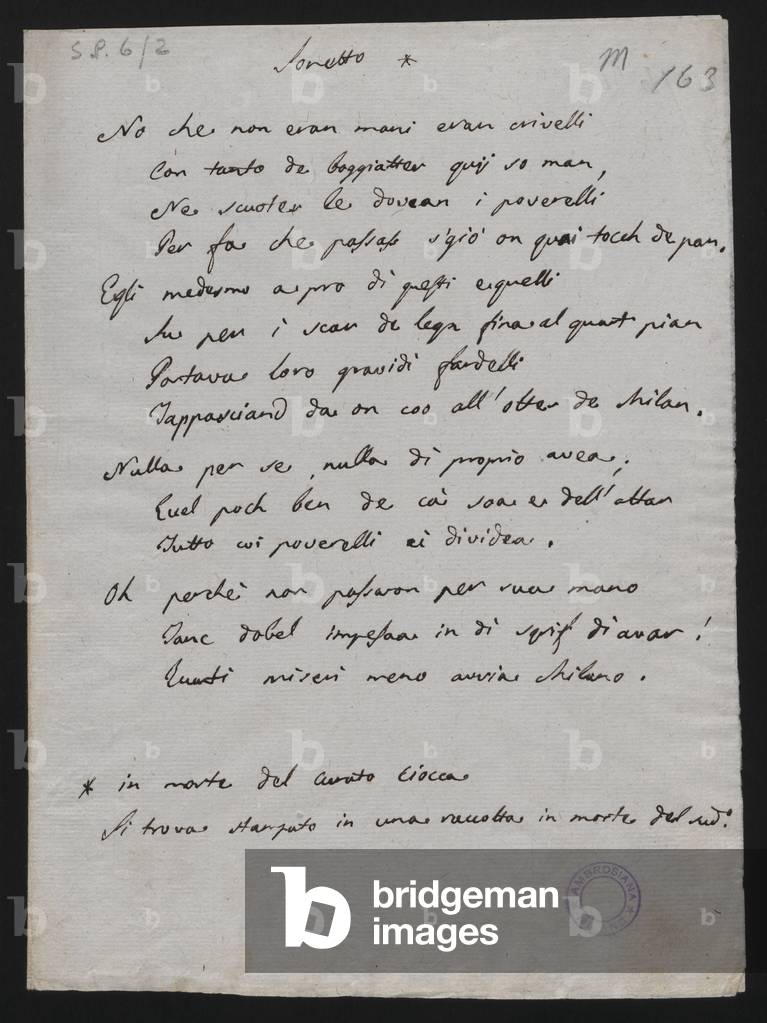 S.P. 6/2
Sonetto *
M
163
No che non eran mani eran crivelli
Con tanto de boggiatter quij so man,
Ne scuoter le dovean i poverelli
Per fa che passass s'giò on quai tocch de pan.
Egli medesmo a pro di questi e quelli
Su per i scar de legn fina al quart pian
Portava loro gravidi fardelli
Tappasciand da on coo all'otter de Milan.
Nulla per se, nulla di proprio avea;
Quel poch ben de cà soa e dell'altar
Tutto coi poverelli ei dividea.
Oh perchè non passaron per sua mano
Tanc dobel impesaa in di sgrif di avar!
Quanti miseri meno avria Milano.
* in morte del Curato Ciocca
Si trova stampato in una raccolta in morte del sud.o
AMBROSIANA
b bridgeman
images